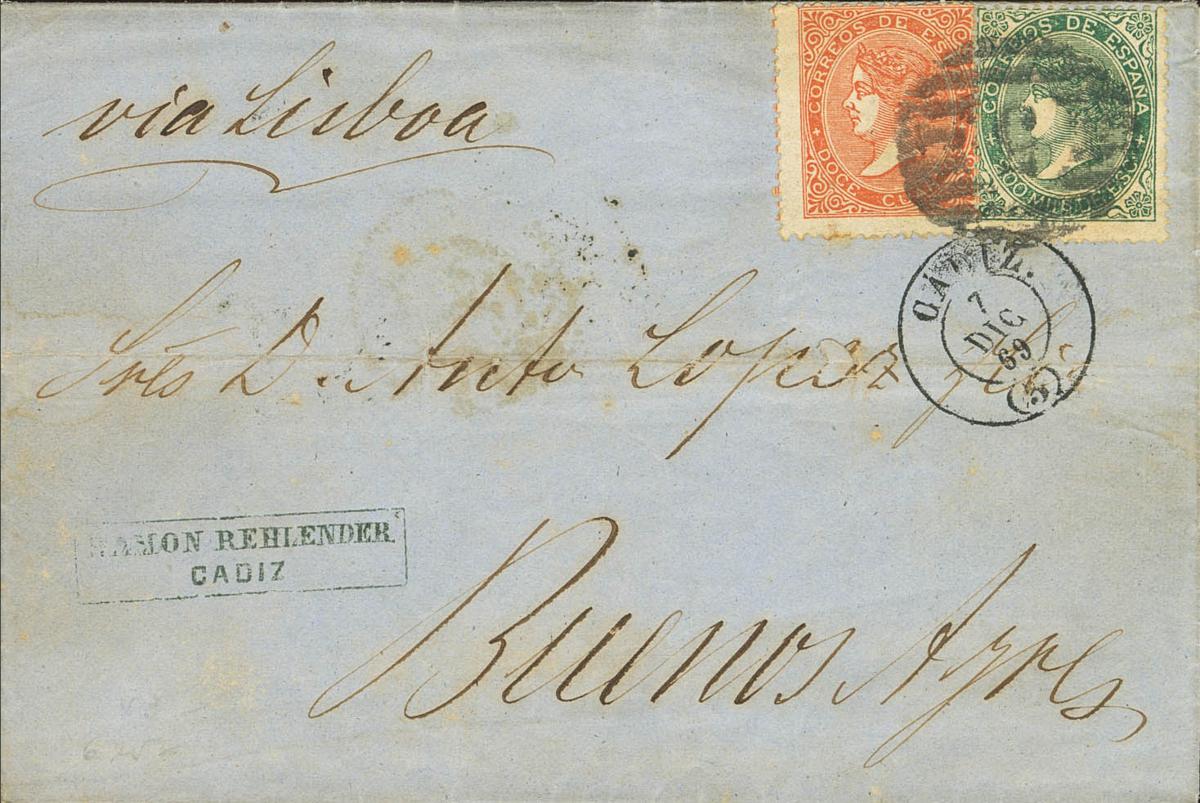 via Lisboa
CORREOS DE ESPAÑA
DOCE CU
CORREOS DE ESPAÑA
CADIZ.
7
DIC
69
(5)
Srês D. Anto Lopez
RAMON REHLENDER
CADIZ
Buenos Ayres